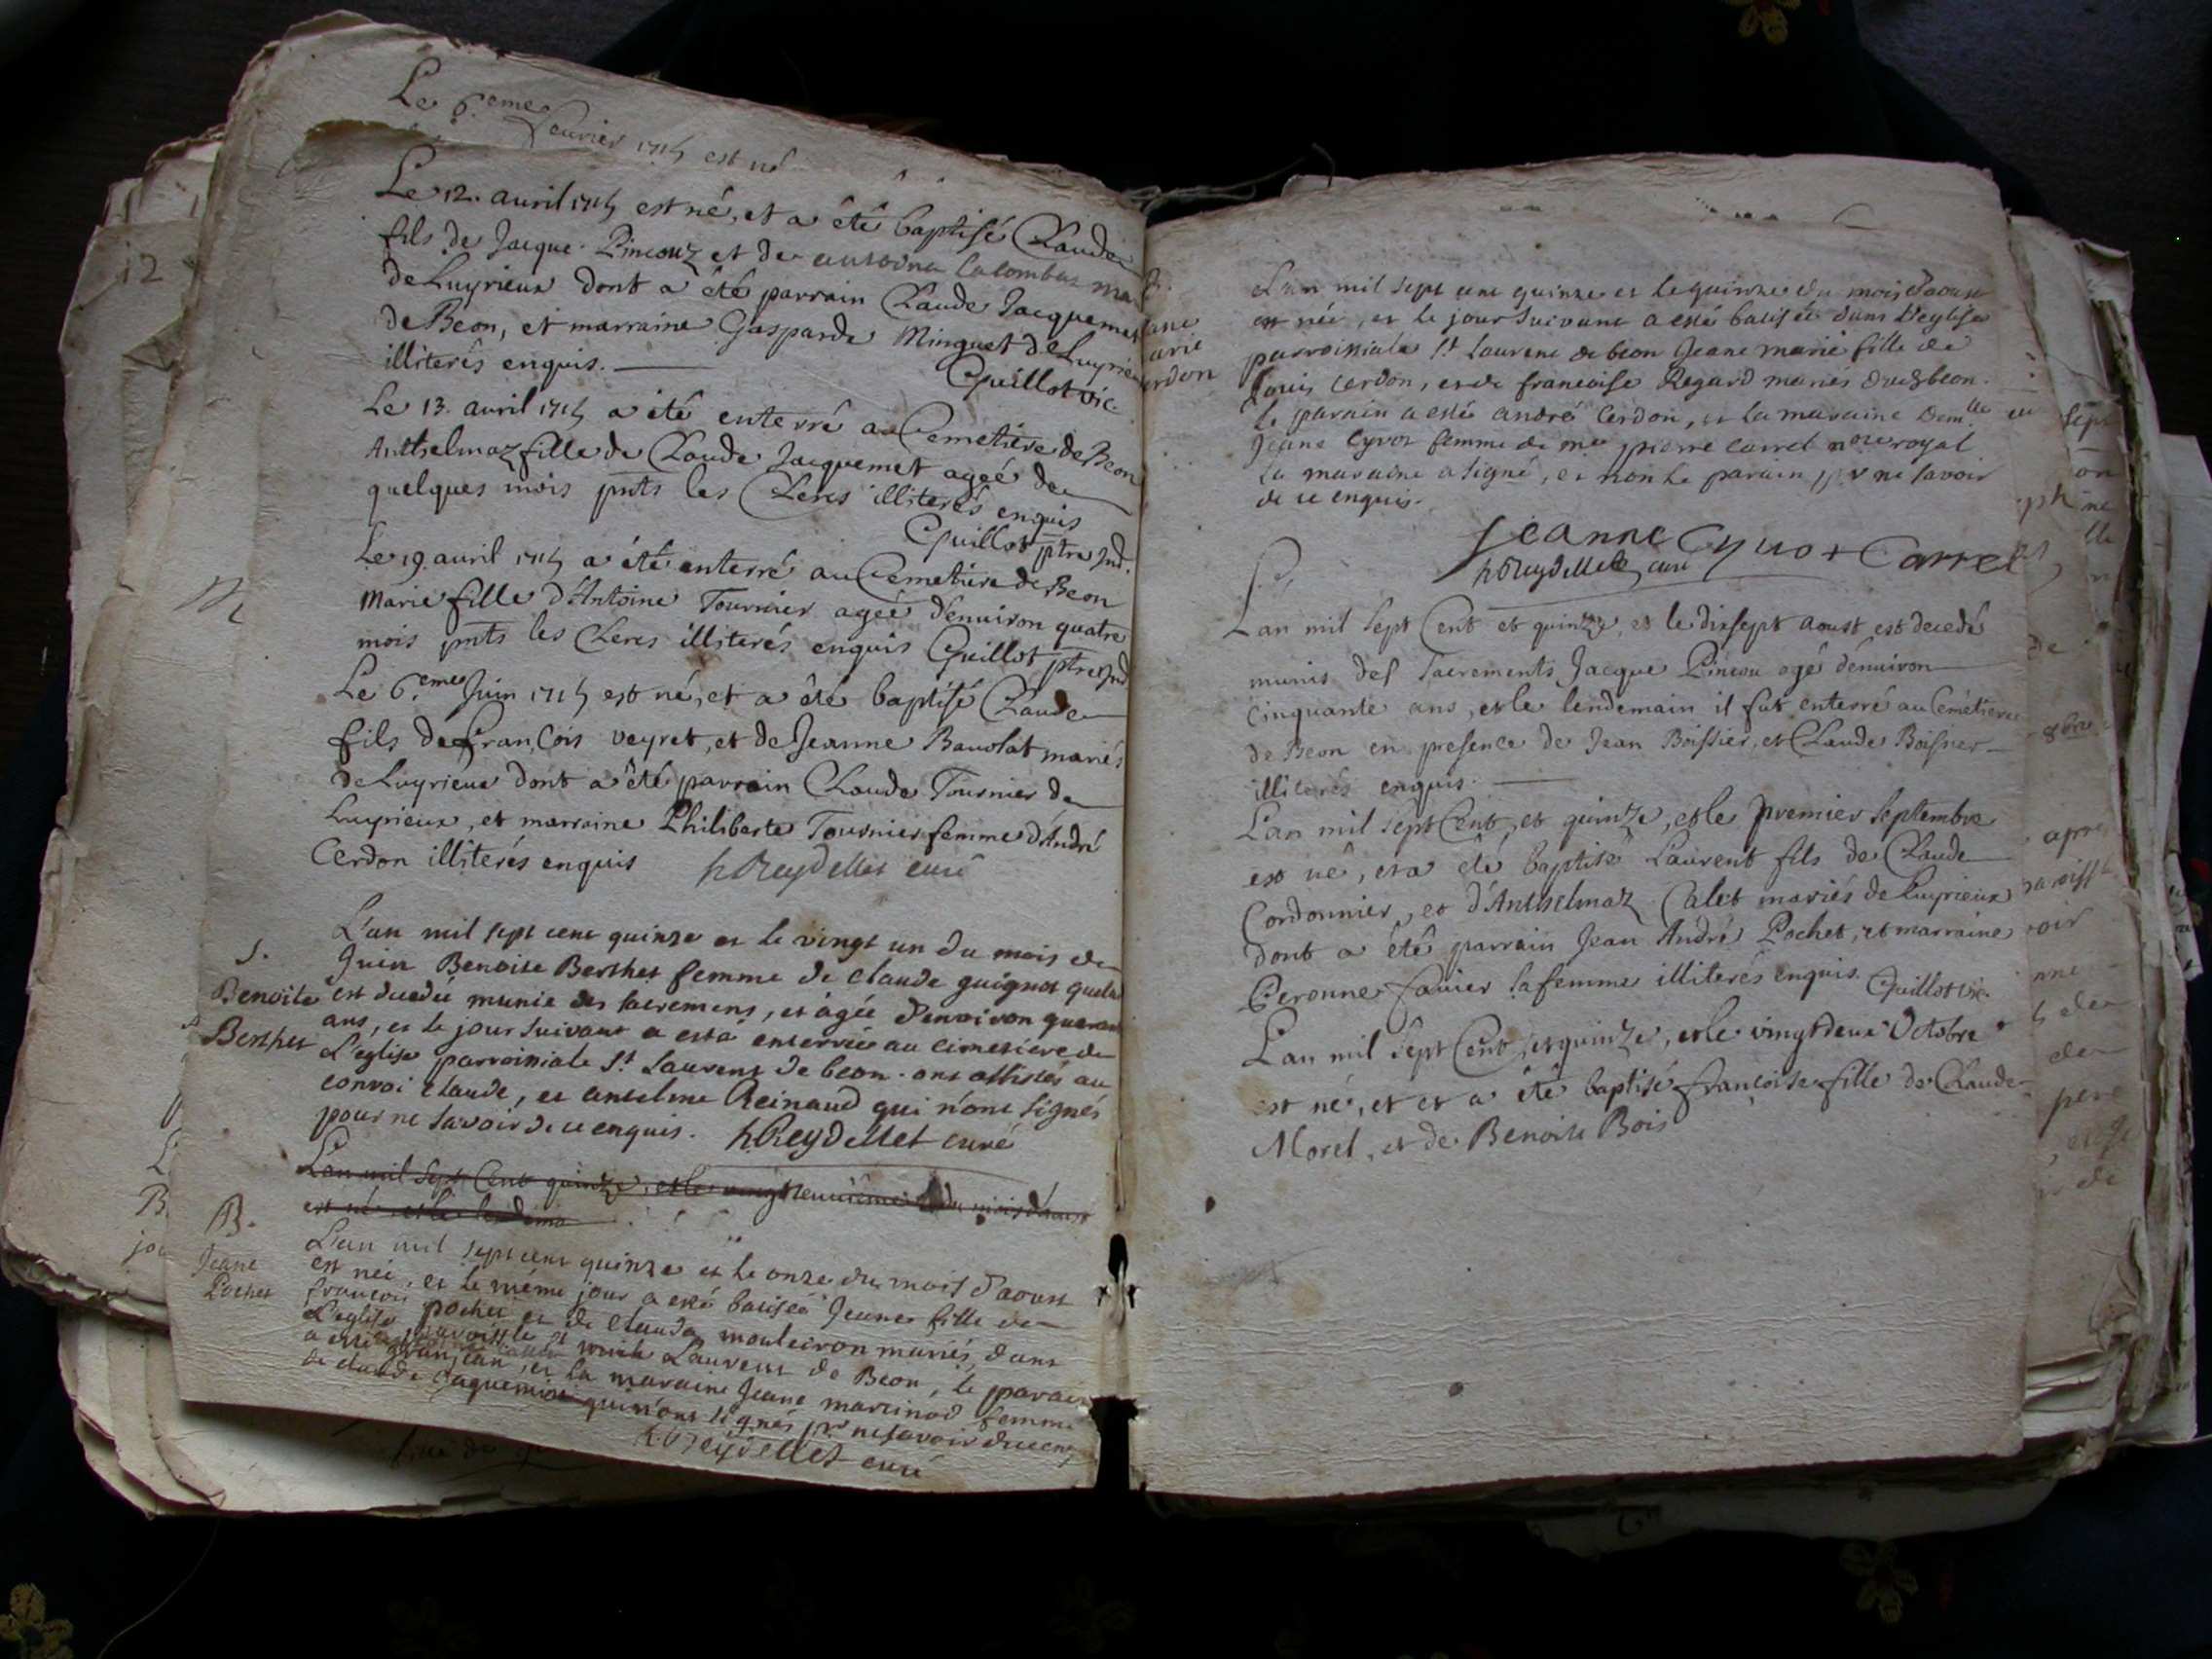 Le 6.eme feurier 1715 est né
Le 12. auril 1715 est né, et a été baptisé Claude
fils de Jacque Pincouz et de antoina Colombaz ma
de Luyrieux dont a été parrain Claude Jacquemet
de Beon, et marraine Gasparde Minguet de Luyrie
illiterés enquis.
Guillot vic.
Le 13. auril 1715 a été enterré au Cemetiere de Beon
Anthelmaz fille de Claude Jacquemet ageé de
quelques mois pnts les Clercs illiterés enquis
Guillot ptre Ind.
Le 19. auril 1715 a été enterré au Cemetiere de Beon
Marie fille d'Antoine Tournier ageé d'enuiron quatre
mois pnts les Clercs illiterés enquis Guillot ptre Ind
Le 6.eme Juin 1715 est né, et a été baptisé Claude
fils de François veyret, et de Jeanne Bauolat mariés
de Luyrieux dont a été parrain Claude Tournier de
Luyrieux, et marraine Philiberte Tournier femme d'André
Cerdon illiterés enquis hReydellet curé
L'an mil sept cent quinze et le vingt un du mois de
S.
Juin Benoite Berthet femme de claude guignot
Benoite
est decedeé munie des sacremens, et ageé d'enuiron
Berthet
ans, et le jour suivant a esté enterrée au cimetiere de
L'eglise parroissiale St Laurent de beon. ont assistés au
convoi claude, et anselme Reinaud qui n'ont signés
pour ne savoir de ce enquis. hReydellet curé
L'an mil sept Cent quinze, et le du mois d'aoust
est né et le
B.
L'an mil sept cent quinze et le onze du mois d'aoust
Jeane
est neé, et le méme jour a esté batiseé Jeane fille de
Pochet
francois pochet et de Clauda mouleiron mariés, dans
L'eglise Laurent de Beon, le parain
a esté et la maraine Jeane martinod femme
de claude Jaquemet qui n'ont signés pr ne savoir
hReydellet curé
B.
L'an mil sept cent quinze et le quinze du mois d'aoust
eane
est neé, et le jour suivant a esté batiseé dans L'eglise
arie
parroissiale St Laurent de beon Jeane marie fille de
erdon
Louis Cerdon, et de francoise Regard mariés beon.
Le parain a esté andré Cerdon, et la maraine Demlle
Jeane Cyvot femme de me pierre Carrel nore royal
La maraine a signé, et non le parain pr ne savoir
de ce enquis.
Jeanne Cyuot Carrel
hReydellet curé
L'an mil sept Cent et quinze, et le dixsept aoust est decedé
munis des sacrements Jacque Pincou agé d'enuiron
Cinquante ans, et le lendemain il fut enterré au Cemétiere
de Beon en presence de Jean Boissier, et Claude Boissier
illiterés enquis.
L'an mil sept Cent, et quinze, et le premier septembre
est né, et a été baptisé Laurent fils de Claude
Cordonnier, et d'Anthelmaz Calet mariés de Luyrieux
dont a été parrain Jean André Pochet, et marraine
Peronne fauier sa femme illiterés enquis. Guillot vic.
L'an mil sept Cent, et quinze, et le vingt deux Octobre
est né, et et a été baptisé françoise fille de Claude
Morel, et de Benoite Bois